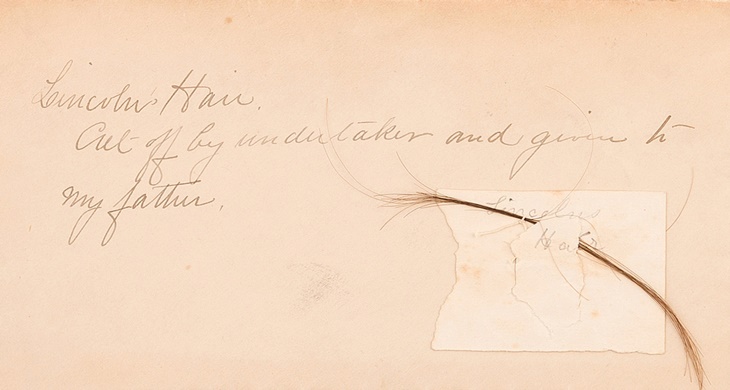 Lincoln's Hair.
Cut off by undertaker and given to
my father.
Lincolns
Hair